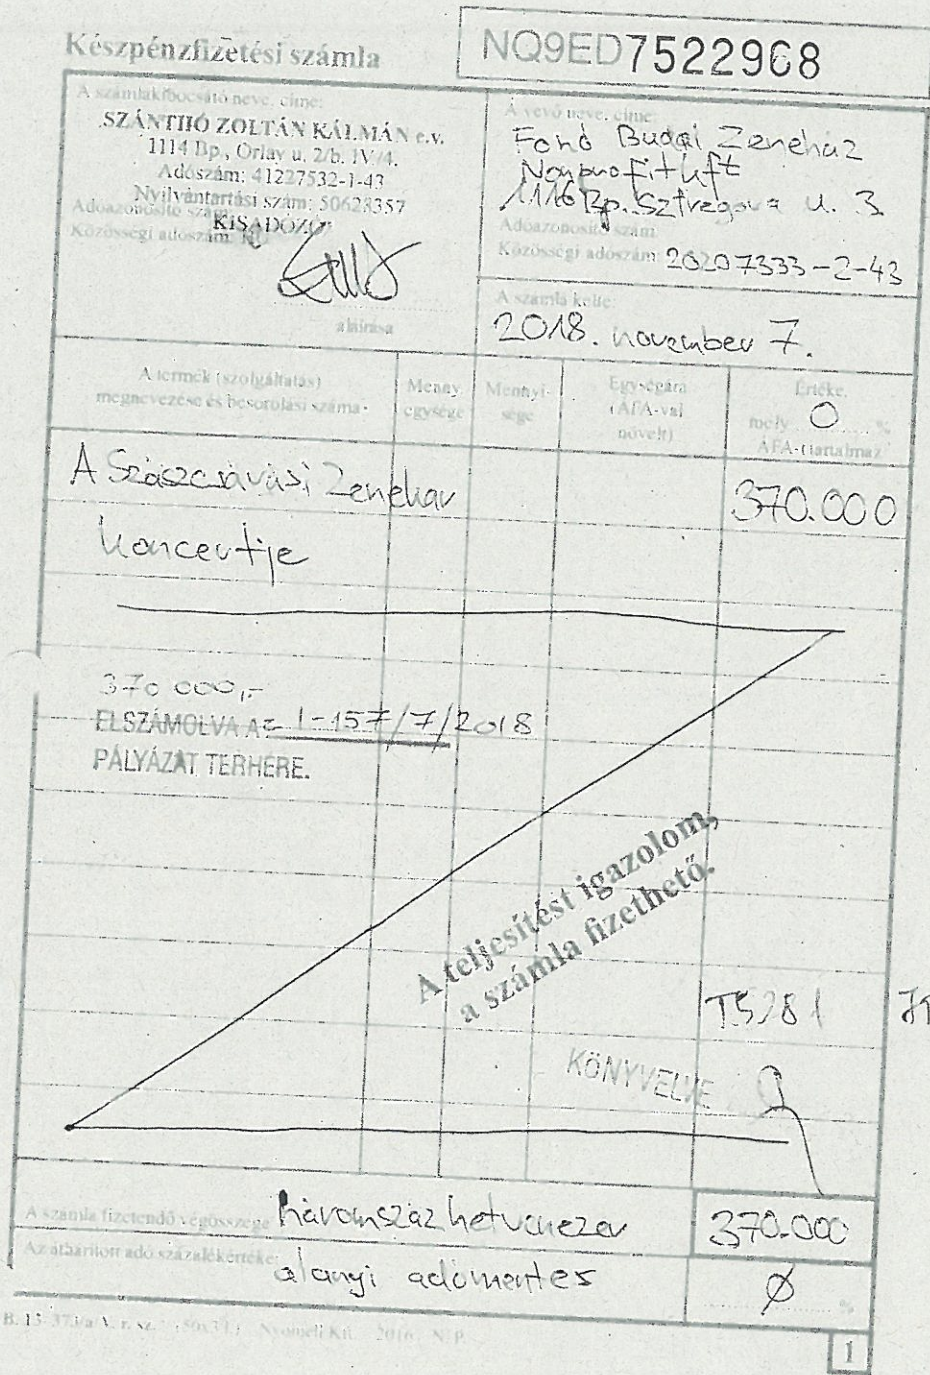 Készpénzfizetési számla
NQ9ED7522968
A számlakibocsátó neve, címe:
SZÁNTHÓ ZOLTÁN KÁLMÁN e.v.
1114 Bp., Orlay u. 2/b. IV/4.
Adószám: 41227532-1-43
Nyilvántartási szám: 50628357
Adóazonosító szám:
KISADÓZÓ
Közösségi adószám:
aláírása
A vevő neve, címe:
Fonó Budai Zeneház
Nonprofit Kft
1116 Bp. Sztregova u. 3
Adóazonosító szám
Közösségi adószám: 20207333-2-43
A számla kelte:
2018. november 7.
A termék (szolgáltatás)
megnevezése és besorolási száma
Menny.
egysége
Mennyi-
sége
Egységára
(ÁFA-val
növelt)
Értéke,
mely 0 %
ÁFA-t tartalmaz
A Szászcsávási Zenekar
370.000
koncertje
370 000,-
ELSZÁMOLVA A 1-157/7/2018
PÁLYÁZAT TERHÉRE.
A teljesítést igazolom,
a számla fizethető.
T5281
KÖNYVELVE
A számla fizetendő végösszege háromszázhetvenezer
370.000
Az áthárított adó százalékértéke: alanyi adómentes
Ø %
B. 13-373/a V. r. sz. (50x3 L) Nyomell Kft. 2016. N. P.
1